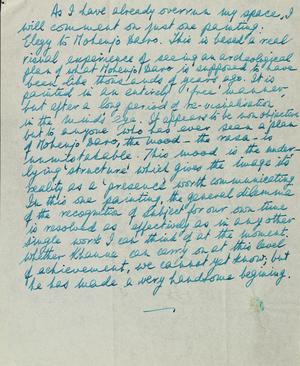 As I have already overrun my space, I
will comment on just one painting:
Elegy to Mohenjo Daro. This is based a real
visual experience of seeing an archeological
plan of what Mohenjo Daro is supposed to have
been like thousands of years ago. It is
painted in an entirely 'free' manner,
but after a long period of re-visualisation
in the mind's eye. It appears to be non objective
but to anyone who has ever seen a plan
of Mohenjo Daro, the mood - the mea - is
unmistakable. This mood is the under-
lying 'structure' which gives the image its
reality as a 'presence' worth communicating.
In this one painting, the general dilemma
of the recognition of subject for our own time
is resolved as effectively as in any other
single work I can think of at the moment.
Whether Khanna can carry on at this level
of achievement, we cannot yet know; but
he has made a very handsome begining.